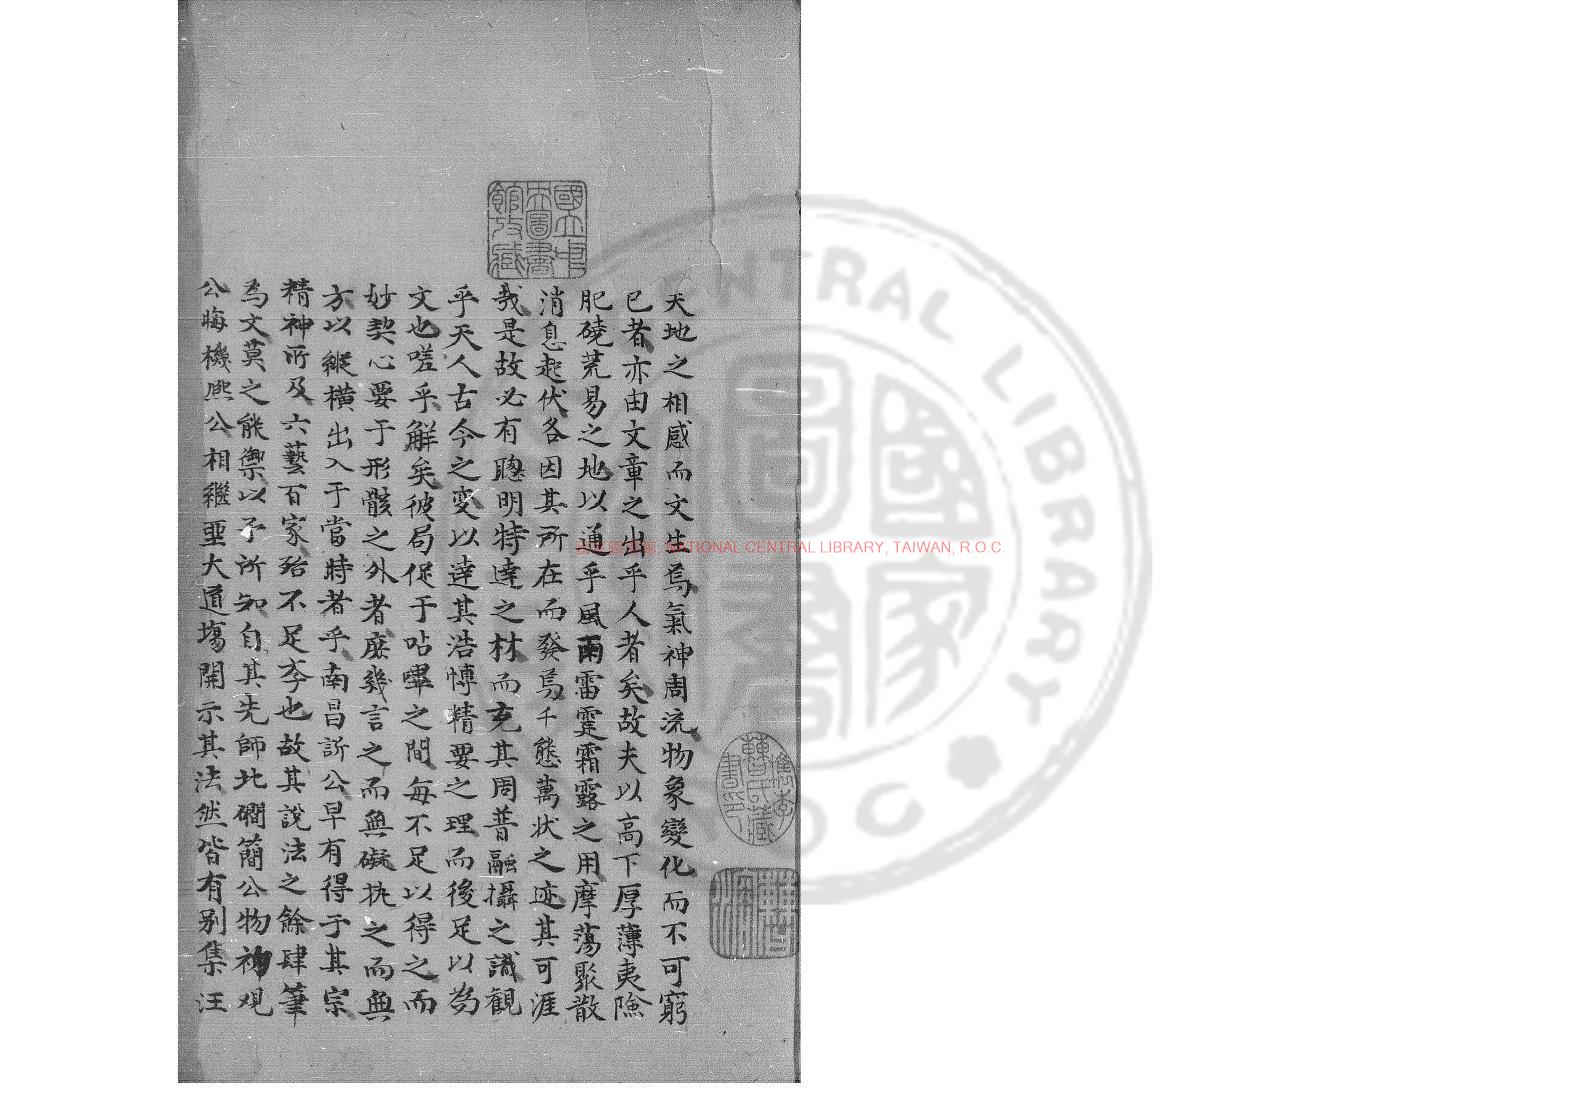 天地之相感而文生焉氣神周流物象變化而不可窮
已者亦由文章之出乎人者矣故夫以高下厚薄夷險
肥磽荒易之地以通乎風雨雷霆霜露之用摩蕩聚散
消息起伏各因其所在而發焉千態萬狀之迹其可涯
哉是故必有聰明特達之材而充其周普融攝之識觀
乎天人古今之变以達其浩博精要之理而後足以為
文也嗟乎鮮矣彼局促于呫嗶之間每不足以得之而
妙契心要于形骸之外者庶幾言之而無礙执之而無
方以縱橫出入于當時者乎南昌訢公早有得于其宗
精神所及六藝百家殆不足李也故其說法之餘肆筆
為文莫之能禦以予所知自其先師北磵簡公物初观
公晦機熈公相繼亜大道場開示其法然皆有别集汪
國立中央圖書館收藏
NATIONAL CENTRAL LIBRARY, TAIWAN, R.O.C.